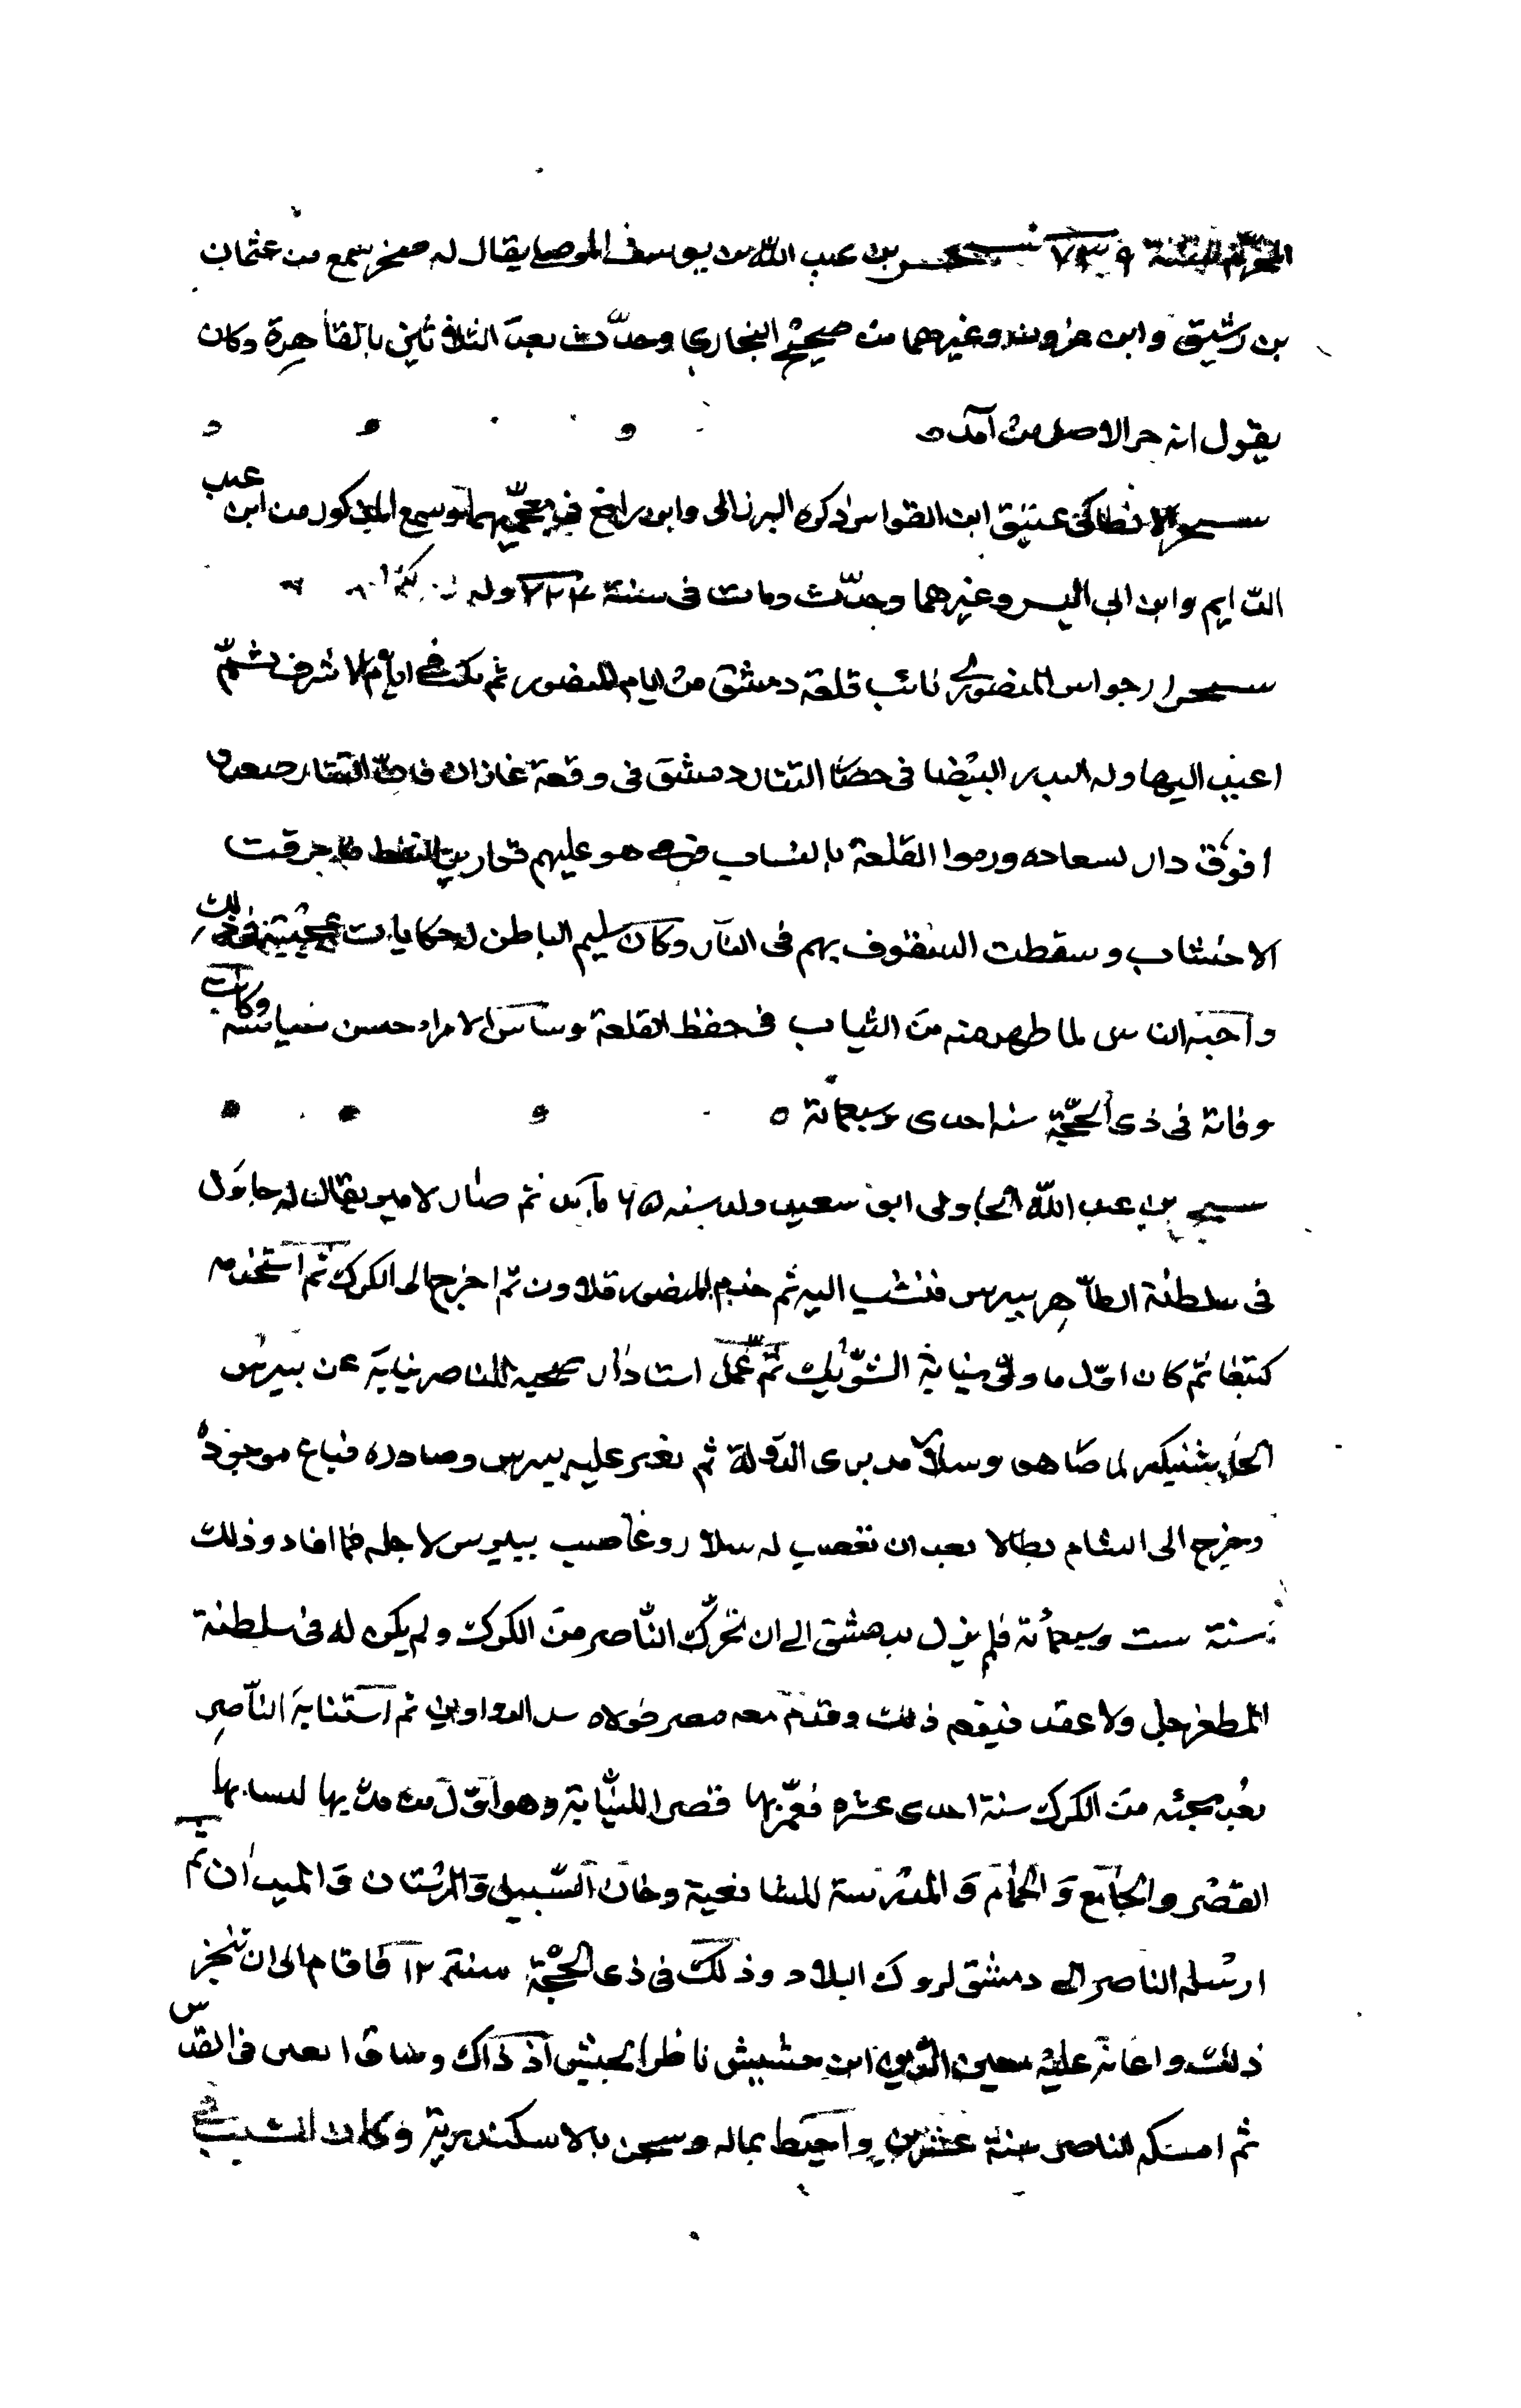 المحرم سنة ٧٣٩ سنجر بن عبد الله بن يوسف الموصلي يقال له صخر سمع من عثمان
بن رشيق وابن عزون وغيرهما من صحيح البخاري وحدّث بعد الثلاثين بالقاهرة وكان
يقول انه حر الاصل من آمد ه
سنجر الانطاكي عتيق ابن القواس ذكره البرزالي وابن رافع في معجميهما وسمع المذكور من ابن عبد
الدايم وابن ابي اليسر وغيرهما وحدّث ومات في سنة ٧٢٤ وله
سنجر ارجواس المنصوري نائب قلعة دمشق من ايام المنصور ثم في ايام الاشرف ثمّ
اعيد اليها وله اليد البيضا في حصار التتار دمشق في وقعة غازان فان التتار صعدوا
فوق دار السعاده ورموا القلعة بالنشاب فرمى هو عليهم قوارير النفط فاحرقت
الاخشاب وسقطت السقوف بهم في النار وكان سليم الباطن له حكايات عجيبة في ذلك
واحبه الناس لما ظهر منه من الثبات في حفظ القلعة وساس الامراء حسن سياسة وكانت
وفاته في ذي الحجّة سنه احدى وسبعمائة ه
سنجر بن عبد الله الجاولي ابو سعيد ولد سنه ٦٥ بآمد ثم صار لامير يقال له جاول
في سلطنة الظاهر بيبرس فنسب اليه ثم خدم المنصور قلاون ثم اخرج الى الكرك ثم استخدمه
كتبغا ثم كان اوّل ما ولي نيابة الشوبك ثم عمل استادار صحبه للناصر نيابة عن بيبرس
الجاشنكير لما صار هو وسلار مدبري الدولة ثم تغير عليه بيبرس وصادره فباع موجوده
وخرج الى الشام بطالا بعد ان تعصب له سلار وغاضب بيبرس لاجله فما افاد وذلك
سنة ست وسبعمائة فلم يزل بدمشق الى ان تحرّك الناصر من الكرك ولم يكن له في سلطنة
المظفر حل ولا عقد فنفعه ذلك وقدم معه مصر فولاه شد الدواوين ثم استنابه الناصر
بعد مجئه من الكرك سنة احدى عشره فعمّر بها قصرا للنيابة وهو اوّل من مدّنها لبنايه بها
القصر والجامع والحمام والمدرسة للشافعية وخان السبيل والمرستان والميدان ثم
ارسله الناصر الى دمشق لروك البلاد وذلك في ذي الحجّة سنة ١٢ فاقام الى ان تنجز
ذلك واعانه عليه معين الدين ابن حشيش ناظر الجيش اذ ذاك وساق العين في القدس
ثم امسكه الناصر سنة عشرين واحيط بماله وسجن بالاسكندرية وكان السبب في